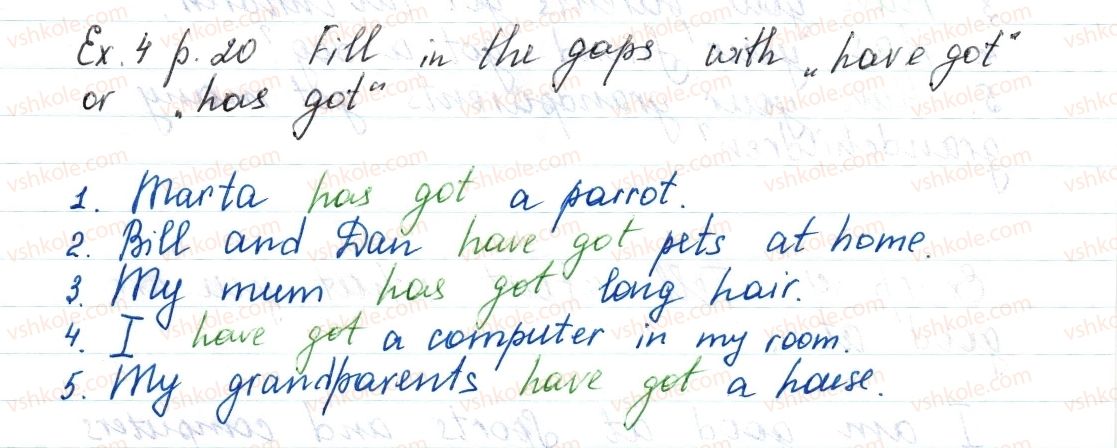 Ex. 4 p. 20 Fill in the gaps with „have got"
or „has got"
1. Marta has got a parrot.
2. Bill and Dan have got pets at home.
3. My mum has got long hair.
4. I have got a computer in my room.
5. My grandparents have got a house.
vshkole.com